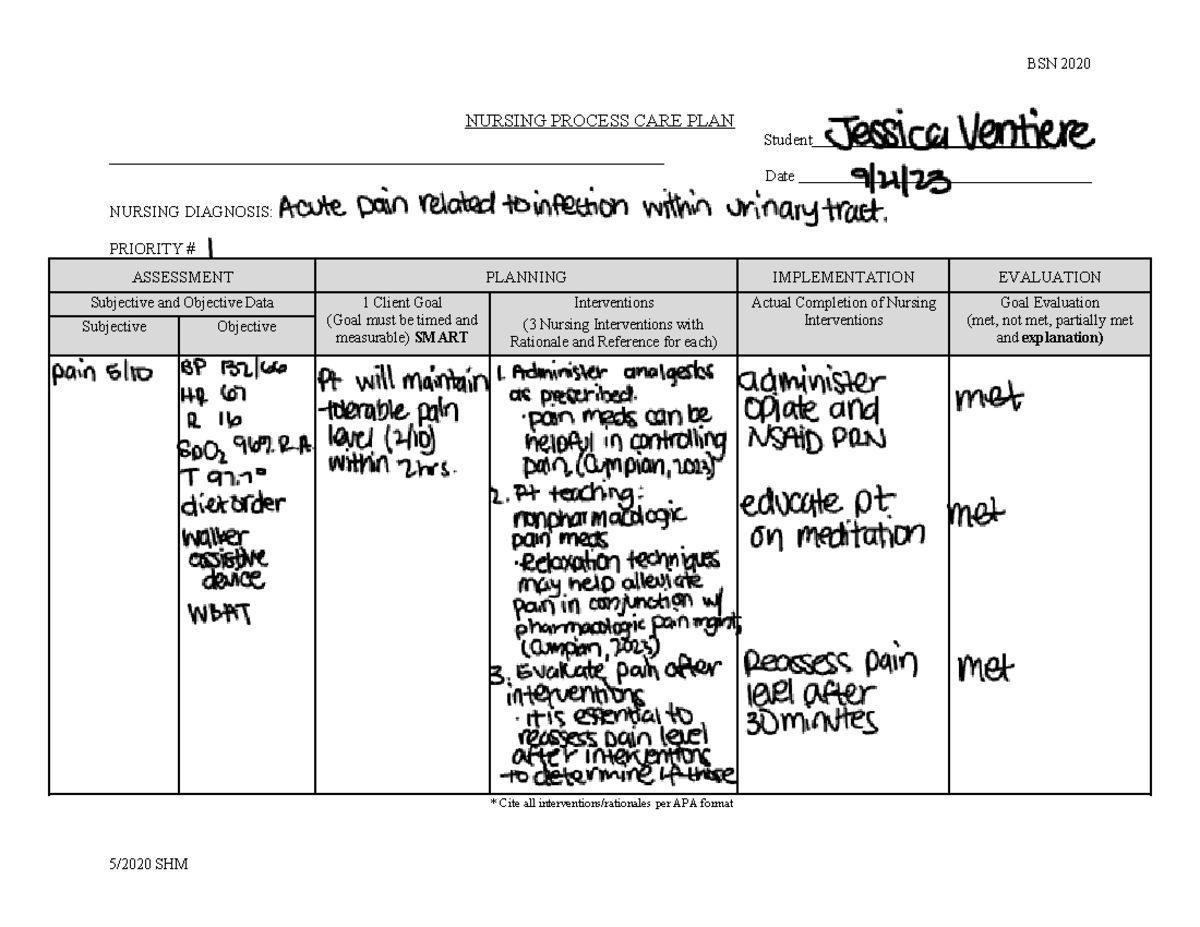 BSN 2020
NURSING PROCESS CARE PLAN
Student Jessica Ventiere
Date 9/21/23
NURSING DIAGNOSIS: Acute pain related to infection within urinary tract.
PRIORITY # 1
ASSESSMENT
PLANNING
IMPLEMENTATION
EVALUATION
Subjective and Objective Data
Subjective
Objective
1 Client Goal
(Goal must be timed and
measurable) SMART
Interventions
(3 Nursing Interventions with
Rationale and Reference for each)
Actual Completion of Nursing
Interventions
Goal Evaluation
(met, not met, partially met
and explanation)
pain 5/10
BP 132/66
HR 67
R 16
SpO2 96% R.A.
T 97.7°
diet order
walker
assistive
device
WBAT
Pt will maintain
tolerable pain
level (2/10)
within 2hrs.
1. Administer analgesks
as prescribed.
·pain meds can be
helpful in controlling
pain (Cumpian, 2023)
2. Pt teaching:
nonpharmacologic
pain meds
·Relaxation techniques
may help alleviate
pain in conjunction w/
pharmacologic pain mgmt,
(Cumpian, 2023)
3. Evaluate pain after
interventions
·it is essential to
reassess pain level
after interventions
to determine if those
administer
opiate and
NSAID PRN
educate pt.
on meditation
Reassess pain
level after
30 minutes
met
met
met
* Cite all interventions/rationales per APA format
5/2020 SHM